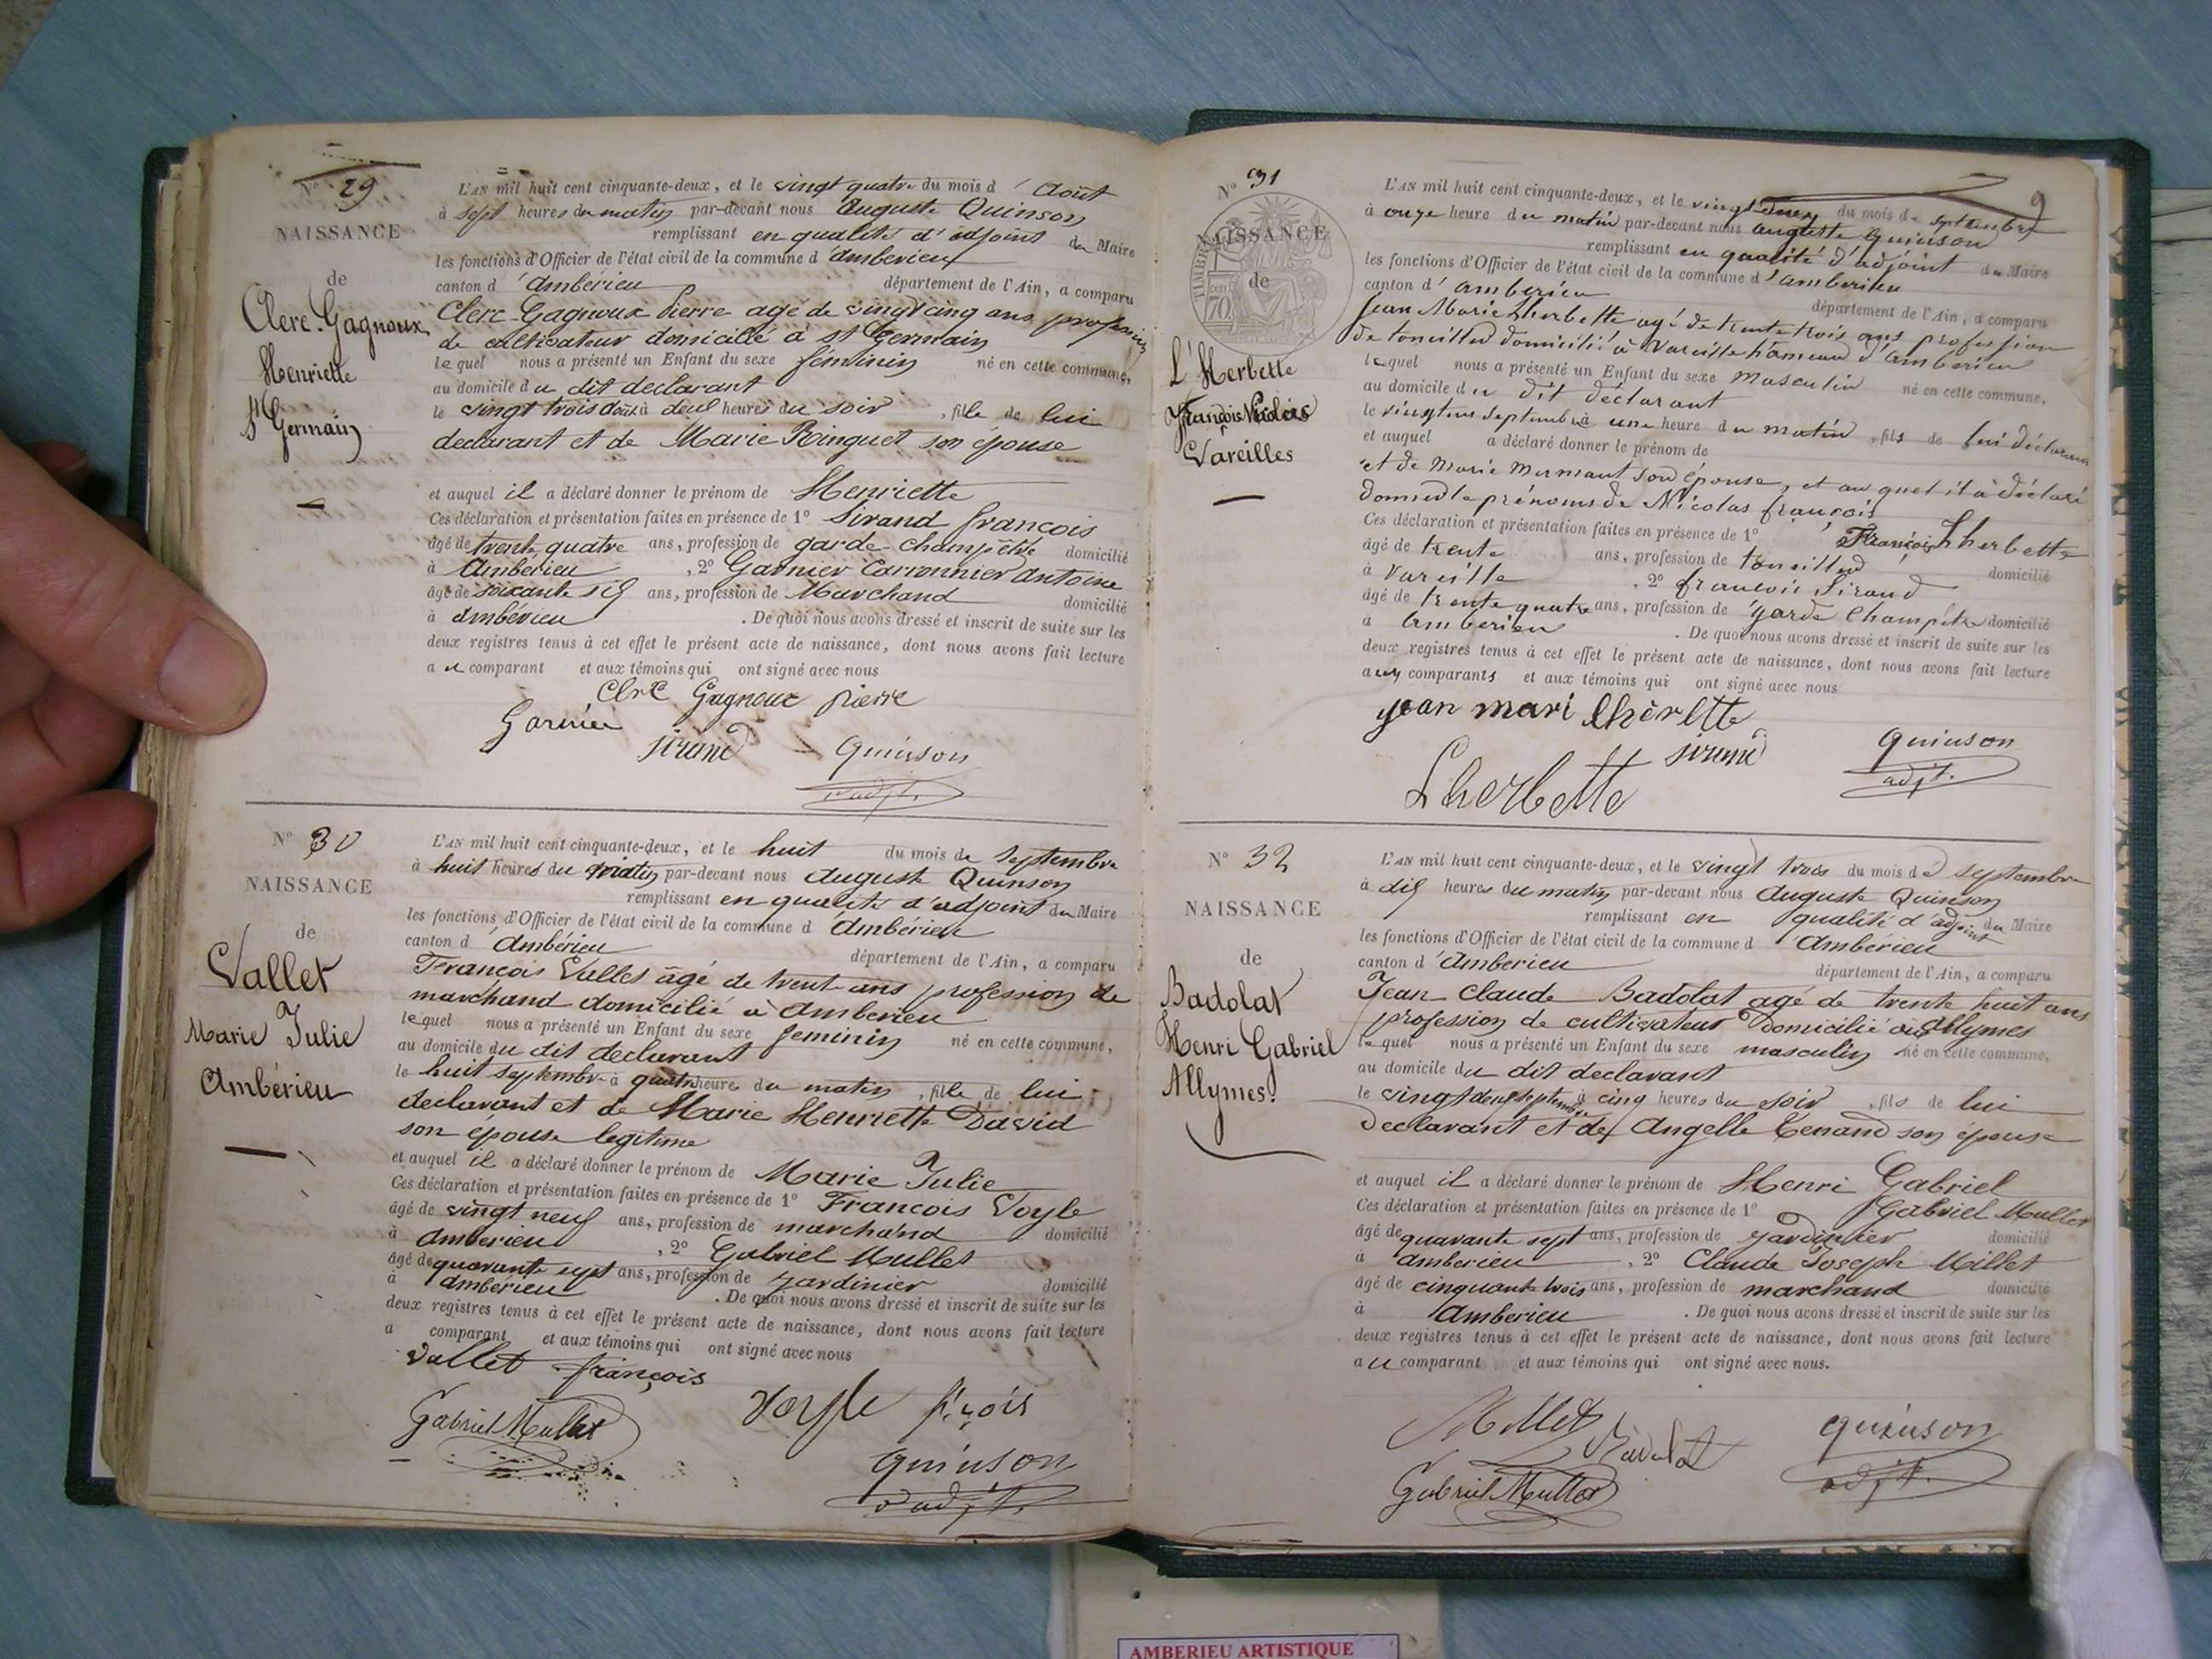 N° 29
NAISSANCE
de
Clerc-Gagnoux
Henriette
St Germain
L'AN mil huit cent cinquante-deux, et le vingt quatre du mois d'Août
à sept heures du matin par-devant nous Auguste Quinson
remplissant en qualité d'adjoint du Maire
les fonctions d'Officier de l'état civil de la commune d'ambérieu
canton d'Ambérieu département de l'Ain, a comparu
Clerc-Gagnoux Pierre agé de vingt cinq ans profession
de cultivateur domicilié à st Germain
lequel nous a présenté un Enfant du sexe féminin né en cette commune,
au domicile du dit declarant
le vingt trois août à deux heures du soir, fille de lui
declarant et de Marie Ringuet son épouse
et auquel il a déclaré donner le prénom de Henriette
Ces déclaration et présentation faites en présence de 1° Sirand françois
âgé de trente quatre ans, profession de garde-champêtre domicilié
à Ambérieu, 2° Garnier Carronnier Antoine
âgé de soixante six ans, profession de Marchand domicilié
à ambérieu. De quoi nous avons dressé et inscrit de suite sur les
deux registres tenus à cet effet le présent acte de naissance, dont nous avons fait lecture
au comparant et aux témoins qui ont signé avec nous
Clerc Gagnoux pierre
Garnier
sirand
quinson
adjt.
N° 30
NAISSANCE
de
Vallet
Marie Julie
Ambérieu
L'AN mil huit cent cinquante-deux, et le huit du mois de Septembre
à huit heures du matin par-devant nous Auguste Quinson
remplissant en qualité d'adjoint du Maire
les fonctions d'Officier de l'état civil de la commune d'Ambérieu
canton d'Ambérieu département de l'Ain, a comparu
François Vallet âgé de trent-ans profession de
marchand domicilié à Amberieu
lequel nous a présenté un Enfant du sexe feminin né en cette commune,
au domicile du dit declarant
le huit septembre à quatre heures du matin, fille de lui
declarant et de Marie Henriette David
son épouse legitime
et auquel il a déclaré donner le prénom de Marie Julie
Ces déclaration et présentation faites en présence de 1° Francois Voyle
âgé de vingt neuf ans, profession de marchand domicilié
à amberieu, 2° Gabriel Mullet
âgé de quarante sept ans, profession de jardinier domicilié
à ambérieu. De quoi nous avons dressé et inscrit de suite sur les
deux registres tenus à cet effet le présent acte de naissance, dont nous avons fait lecture
a comparant et aux témoins qui ont signé avec nous
Vallet françois
Gabriel Mullet
Voyle fçois
quinson
adjt.
9
N° 31
NAISSANCE
de
TIMBRE
70
L'Herbette
François Nicolas
Vareilles
L'AN mil huit cent cinquante-deux, et le vingt deux du mois de septembre
à onze heure du matin par-devant nous auguste quinson
remplissant en qualité d'adjoint du Maire
les fonctions d'Officier de l'état civil de la commune d'amberieu
canton d'amberieu département de l'Ain, a comparu
Jean Marie Lherbette agé de trente trois ans profession
de tonnellier domicilié à Vareille hameau d'amberieu
lequel nous a présenté un Enfant du sexe Masculin né en cette commune,
au domicile du dit déclarant
le vingt un septembre à une heure du matin, fils de lui déclarant
et auquel a déclaré donner le prénom de
et de Marie Mermant son épouse, et auquel il a déclaré
donner le prénoms de Nicolas françois
Ces déclaration et présentation faites en présence de 1° François Lherbette
âgé de trente ans, profession de domicilié
à Vareille, 2° francois Sirand
âgé de trente quatre ans, profession de garde Champêtre domicilié
à Amberieu. De quoi nous avons dressé et inscrit de suite sur les
deux registres tenus à cet effet le présent acte de naissance, dont nous avons fait lecture
aux comparants et aux témoins qui ont signé avec nous
jean mari lhèrltte
Lherbette
sirand
quinson
adjt.
N° 32
NAISSANCE
de
Badolat
Henri Gabriel
Allymes.
L'AN mil huit cent cinquante-deux, et le vingt trois du mois de septembre
à dix heures du matin par-devant nous Auguste Quinson
remplissant en qualité d'adjoint du Maire
les fonctions d'Officier de l'état civil de la commune d'Ambérieu
canton d'Amberieu département de l'Ain, a comparu
Jean-Claude Badolat agé de trente huit ans
profession de cultivateur domicilié aux Allymes
lequel nous a présenté un Enfant du sexe masculin né en cette commune,
au domicile du dit declarant
le vingt deux septembre à cinq heures du soir, fils de lui
declarant et de Angelle Tenand son épouse
et auquel il a déclaré donner le prénom de Henri Gabriel
Ces déclaration et présentation faites en présence de 1° Gabriel Mullet
âgé de quarante sept ans, profession de jardinier domicilié
à amberieu, 2° Claude Joseph Millet
âgé de cinquante trois ans, profession de marchand domicilié
à Amberieu. De quoi nous avons dressé et inscrit de suite sur les
deux registres tenus à cet effet le présent acte de naissance, dont nous avons fait lecture
au comparant et aux témoins qui ont signé avec nous.
Millet
Badolat
Gabriel Mullet
quinson
adjt.
AMBERIEU ARTISTIQUE